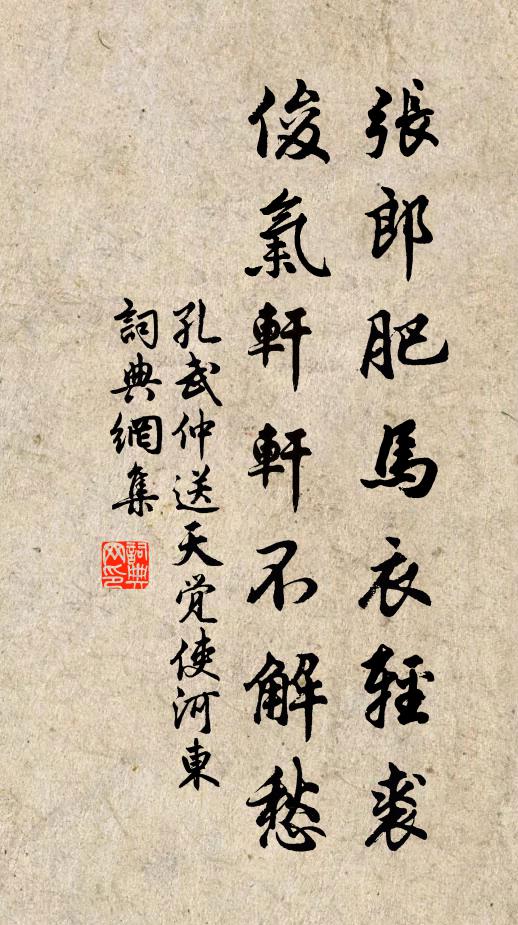 張郎肥馬衣輕裘
俊氣軒軒不解愁
孔武仲送天觉使河東
詞典網集
詞典網印